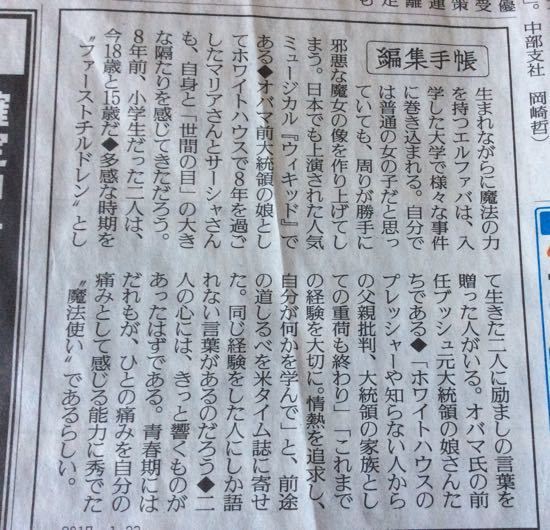 編集手帳
生まれながらに魔法の力
を持つエルファバは、入
学した大学で様々な事件
に巻き込まれる。自分で
は普通の女の子だと思っ
ていても、周りが勝手に
邪悪な魔女の像を作り上げてし
まう。日本でも上演された人気
ミュージカル『ウィキッド』で
ある◆オバマ前大統領の娘とし
てホワイトハウスで8年を過ご
したマリアさんとサーシャさん
も、自身と「世間の目」の大き
な隔たりを感じてきただろう。
8年前、小学生だった二人は、
今18歳と15歳だ◆多感な時期を
〝ファーストチルドレン〟とし
て生きた二人に励ましの言葉を
贈った人がいる。オバマ氏の前
任ブッシュ元大統領の娘さんた
ちである◆「ホワイトハウスの
プレッシャーや知らない人から
の父親批判、大統領の家族とし
ての重荷も終わり」「これまで
の経験を大切に。情熱を追求し、
自分が何かを学んで」と、前途
の道しるべを米タイム誌に寄せ
た。同じ経験をした人にしか語
れない言葉があるのだろう◆二
人の心には、きっと響くものが
あったはずである。青春期には
だれもが、ひとの痛みを自分の
痛みとして感じる能力に秀でた
〝魔法使い〟であるらしい。
中部支社 岡崎哲)